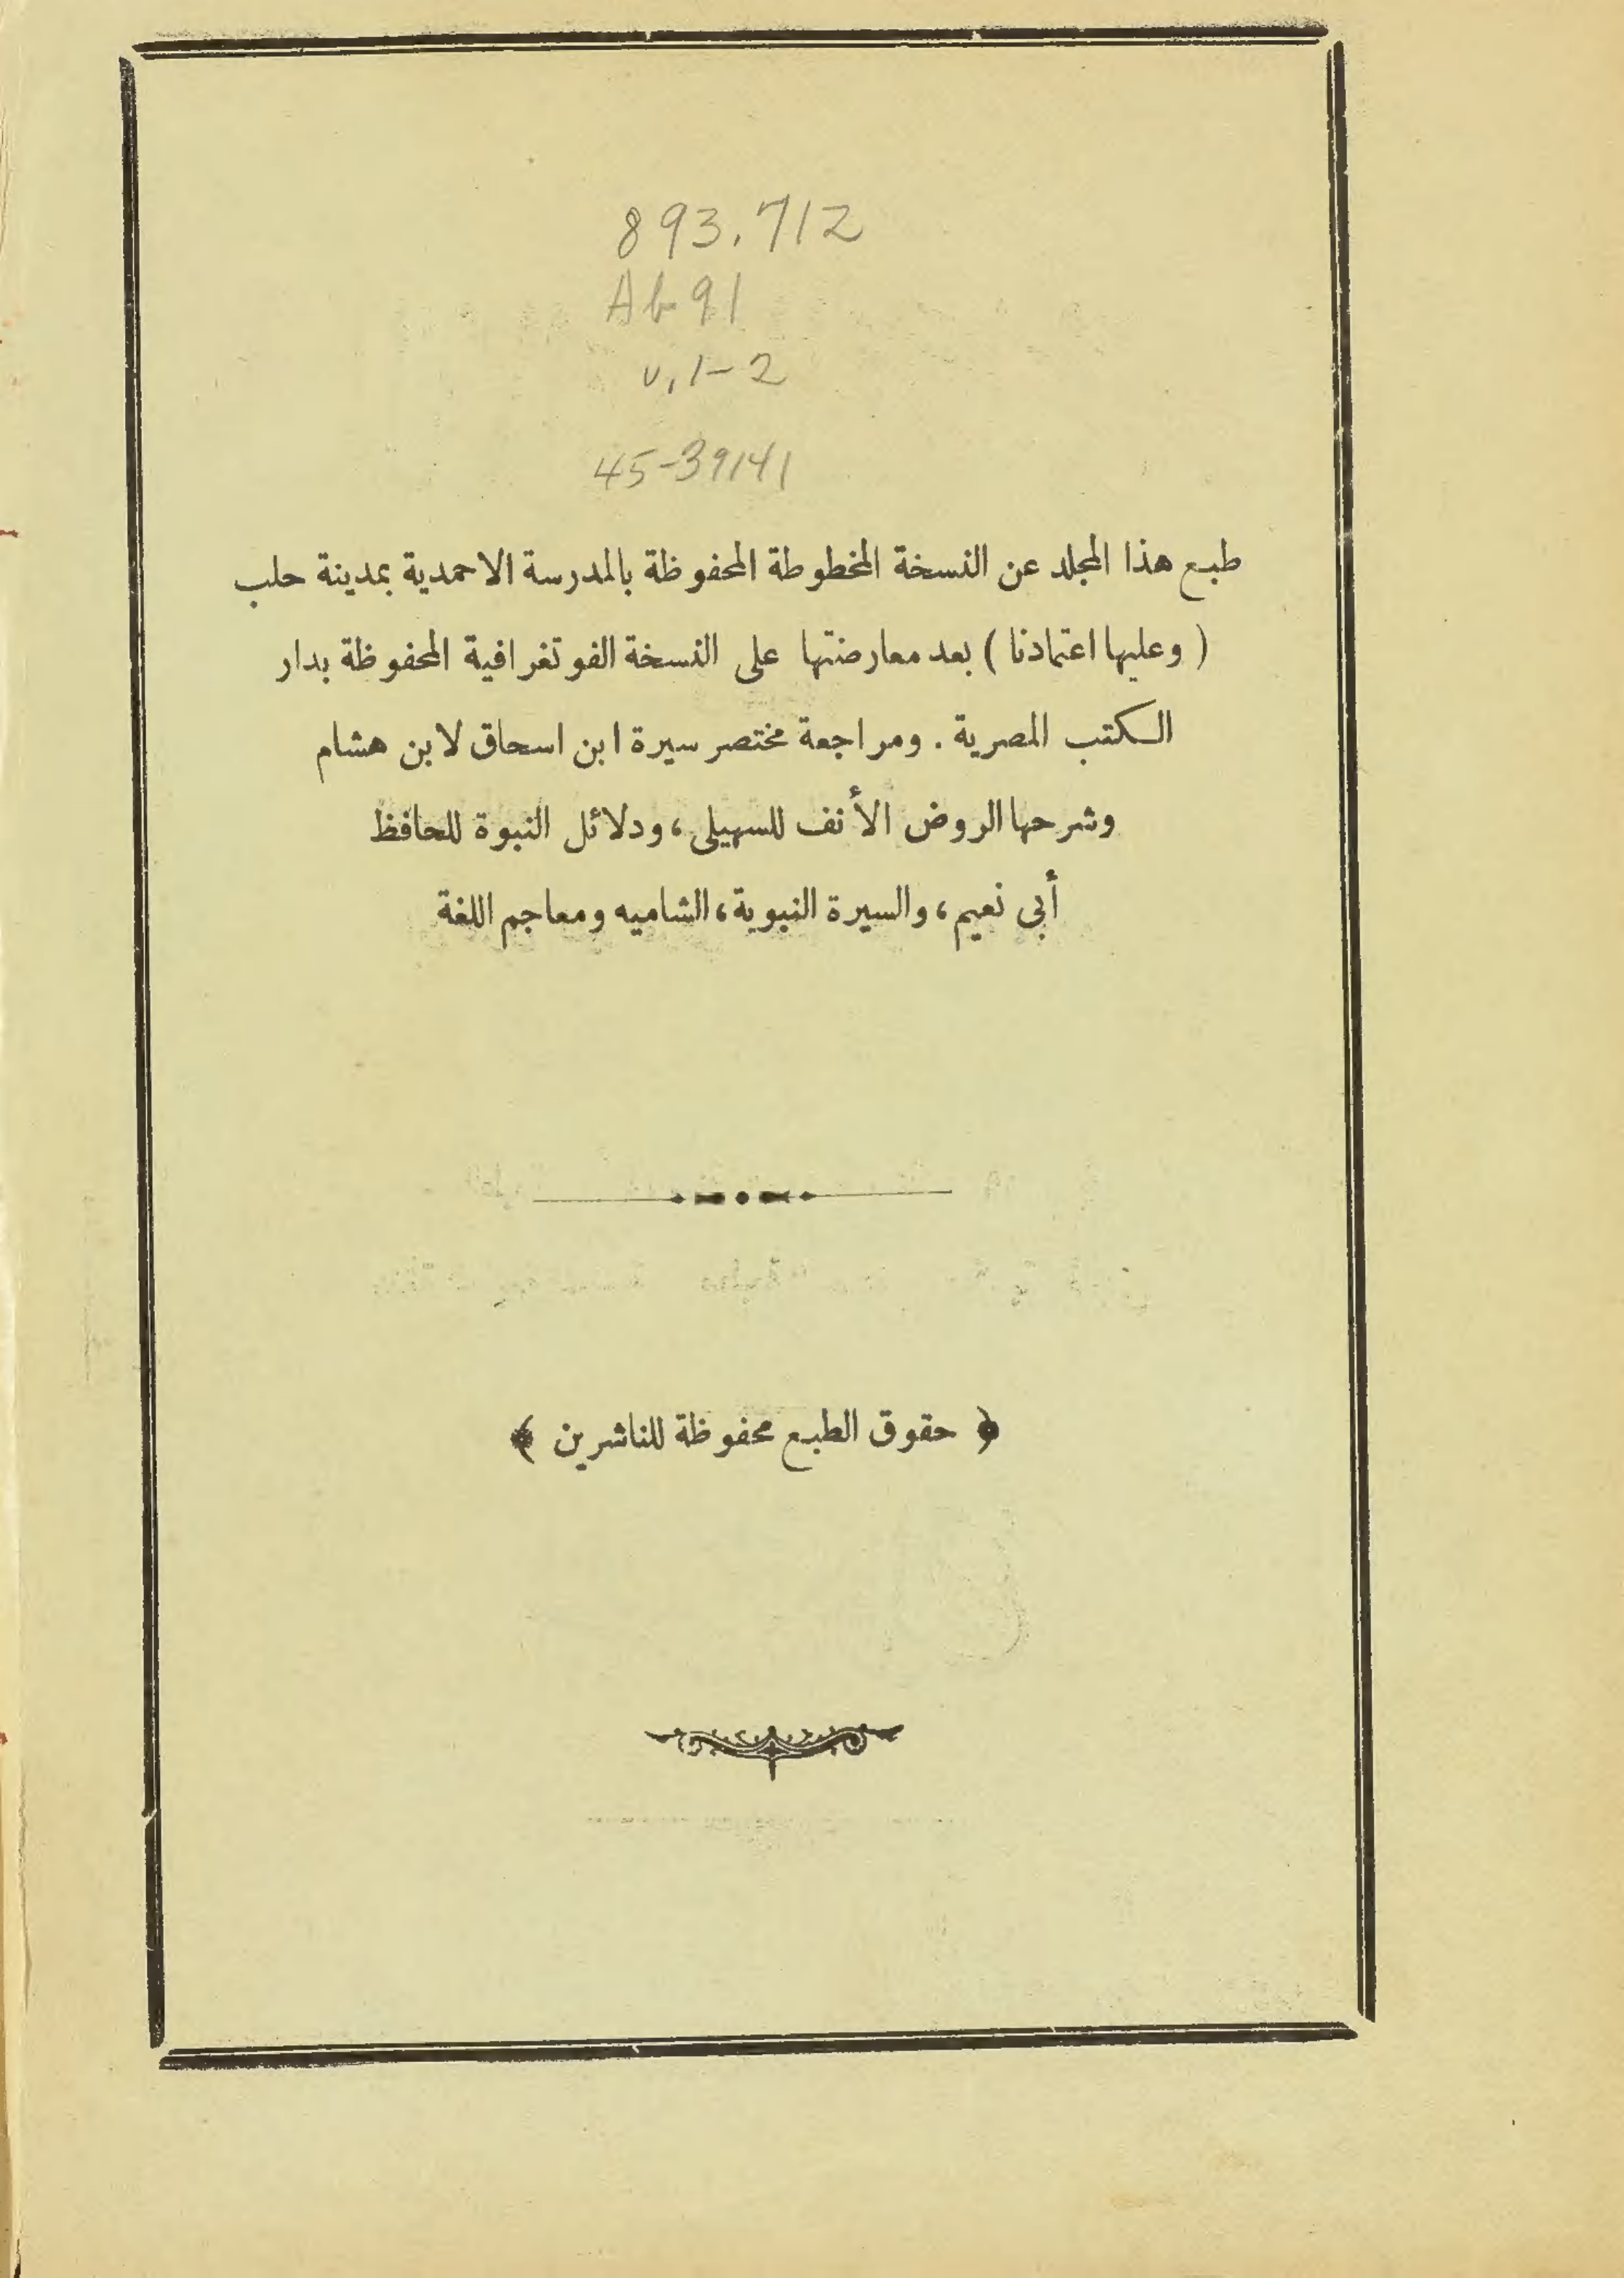 893.712
Ab91
v.1-2
45-39141
طبع هذا المجلد عن النسخة المخطوطة المحفوظة بالمدرسة الاحمدية بمدينة حلب
( وعليها اعتمادنا ) بعد معارضتها على النسخة الفوتغرافية المحفوظة بدار
الكتب المصرية . ومراجعة مختصر سيرة ابن اسحاق لابن هشام
وشرحها الروض الأنف للسهيلى ، ودلائل النبوة للحافظ
أبي نعيم ، والسيرة النبوية ، الشاميه ومعاجم اللغة
﴿ حقوق الطبع محفوظة للناشرين ﴾